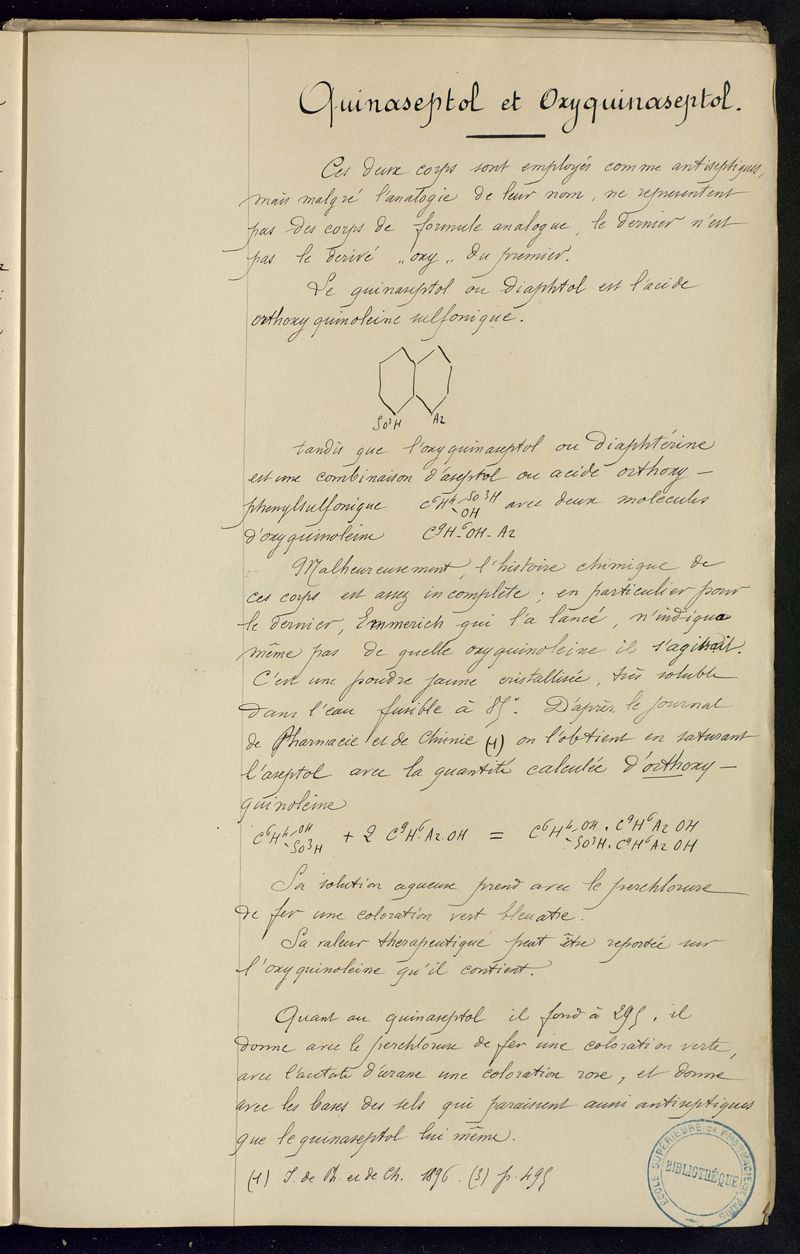 Quinaseptol et Oxyquinaseptol.
Ces deux corps sont employés comme antiseptiques,
mais malgré l'analogie de leur nom, ne représentent
pas des corps de formule analogue, le dernier n'est
pas le dérivé „oxy„ du premier.
Le quinaseptol ou diaphtol est l'acide
orthoxyquinoleine sulfonique.
SO³H Az
tandis que l'oxyquinaseptol ou diaphtérine
est une combinaison d'aseptol ou acide orthoxy-
phenylsulfonique C⁶H⁴-SO³H -OH avec deux molécules
d'oxyquinoleine C⁹H⁶-OH-Az
Malheureusement, l'histoire chimique de
ces corps est assez incomplète; en particulier pour
le dernier, Emmerich qui l'a lancé, n'indique
même pas de quelle oxyquinoleine il s'agissait.
C'est une poudre jaune cristallisée, très soluble
dans l'eau fusible à 85°. D'après le Journal
de Pharmacie et de Chimie (1) on l'obtient en saturant
l'aseptol avec la quantité calculée d'orthoxy-
quinoléine
C⁶H⁴-OH -SO³H + 2 C⁹H⁶.Az.OH = C⁶H⁴-OH . C⁹H⁶Az OH -SO³H . C⁹H⁶Az OH
Sa solution aqueuse prend avec le perchlorure
de fer une coloration vert bleuatre.
Sa valeur therapeutique peut être reportée sur
l'oxyquinoleine qu'il contient.
Quant au quinaseptol il fond à 295, il
donne avec le perchlorure de fer une coloration verte,
avec l'acétate d'urane une coloration rose, et donne
avec les bases des sels qui paraissent aussi antiseptiques
que le quinaseptol lui même.
(1) J. de Ph. et de Ch. 1896. (3) p. 495
ECOLE SUPÉRIEURE DE PHARMACIE DE PARIS
BIBLIOTHÈQUE